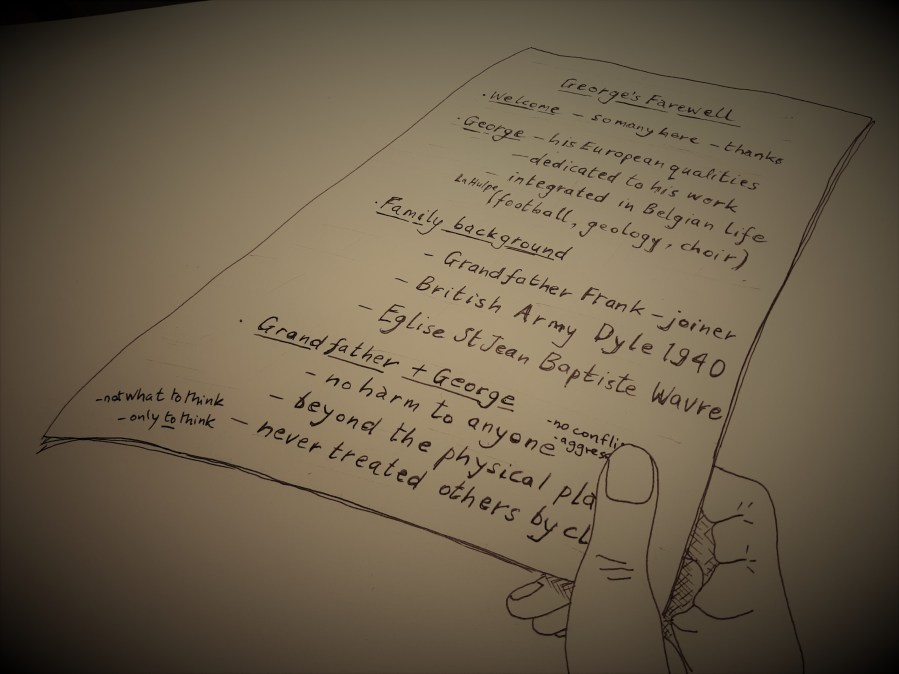 George's Farewell
· Welcome - so many here - thanks
· George - his European qualities
- dedicated to his work
- integrated in Belgian life
La Hulpe (football, geology, choir)
· Family background
- Grandfather Frank - joiner
- British Army Dyle 1940
- Eglise St Jean Baptiste Wavre
· Grandfather + George
- no harm to anyone
- no confli
- aggres
- beyond the physical pla
- never treated others by cl
- not what to think
- only to think